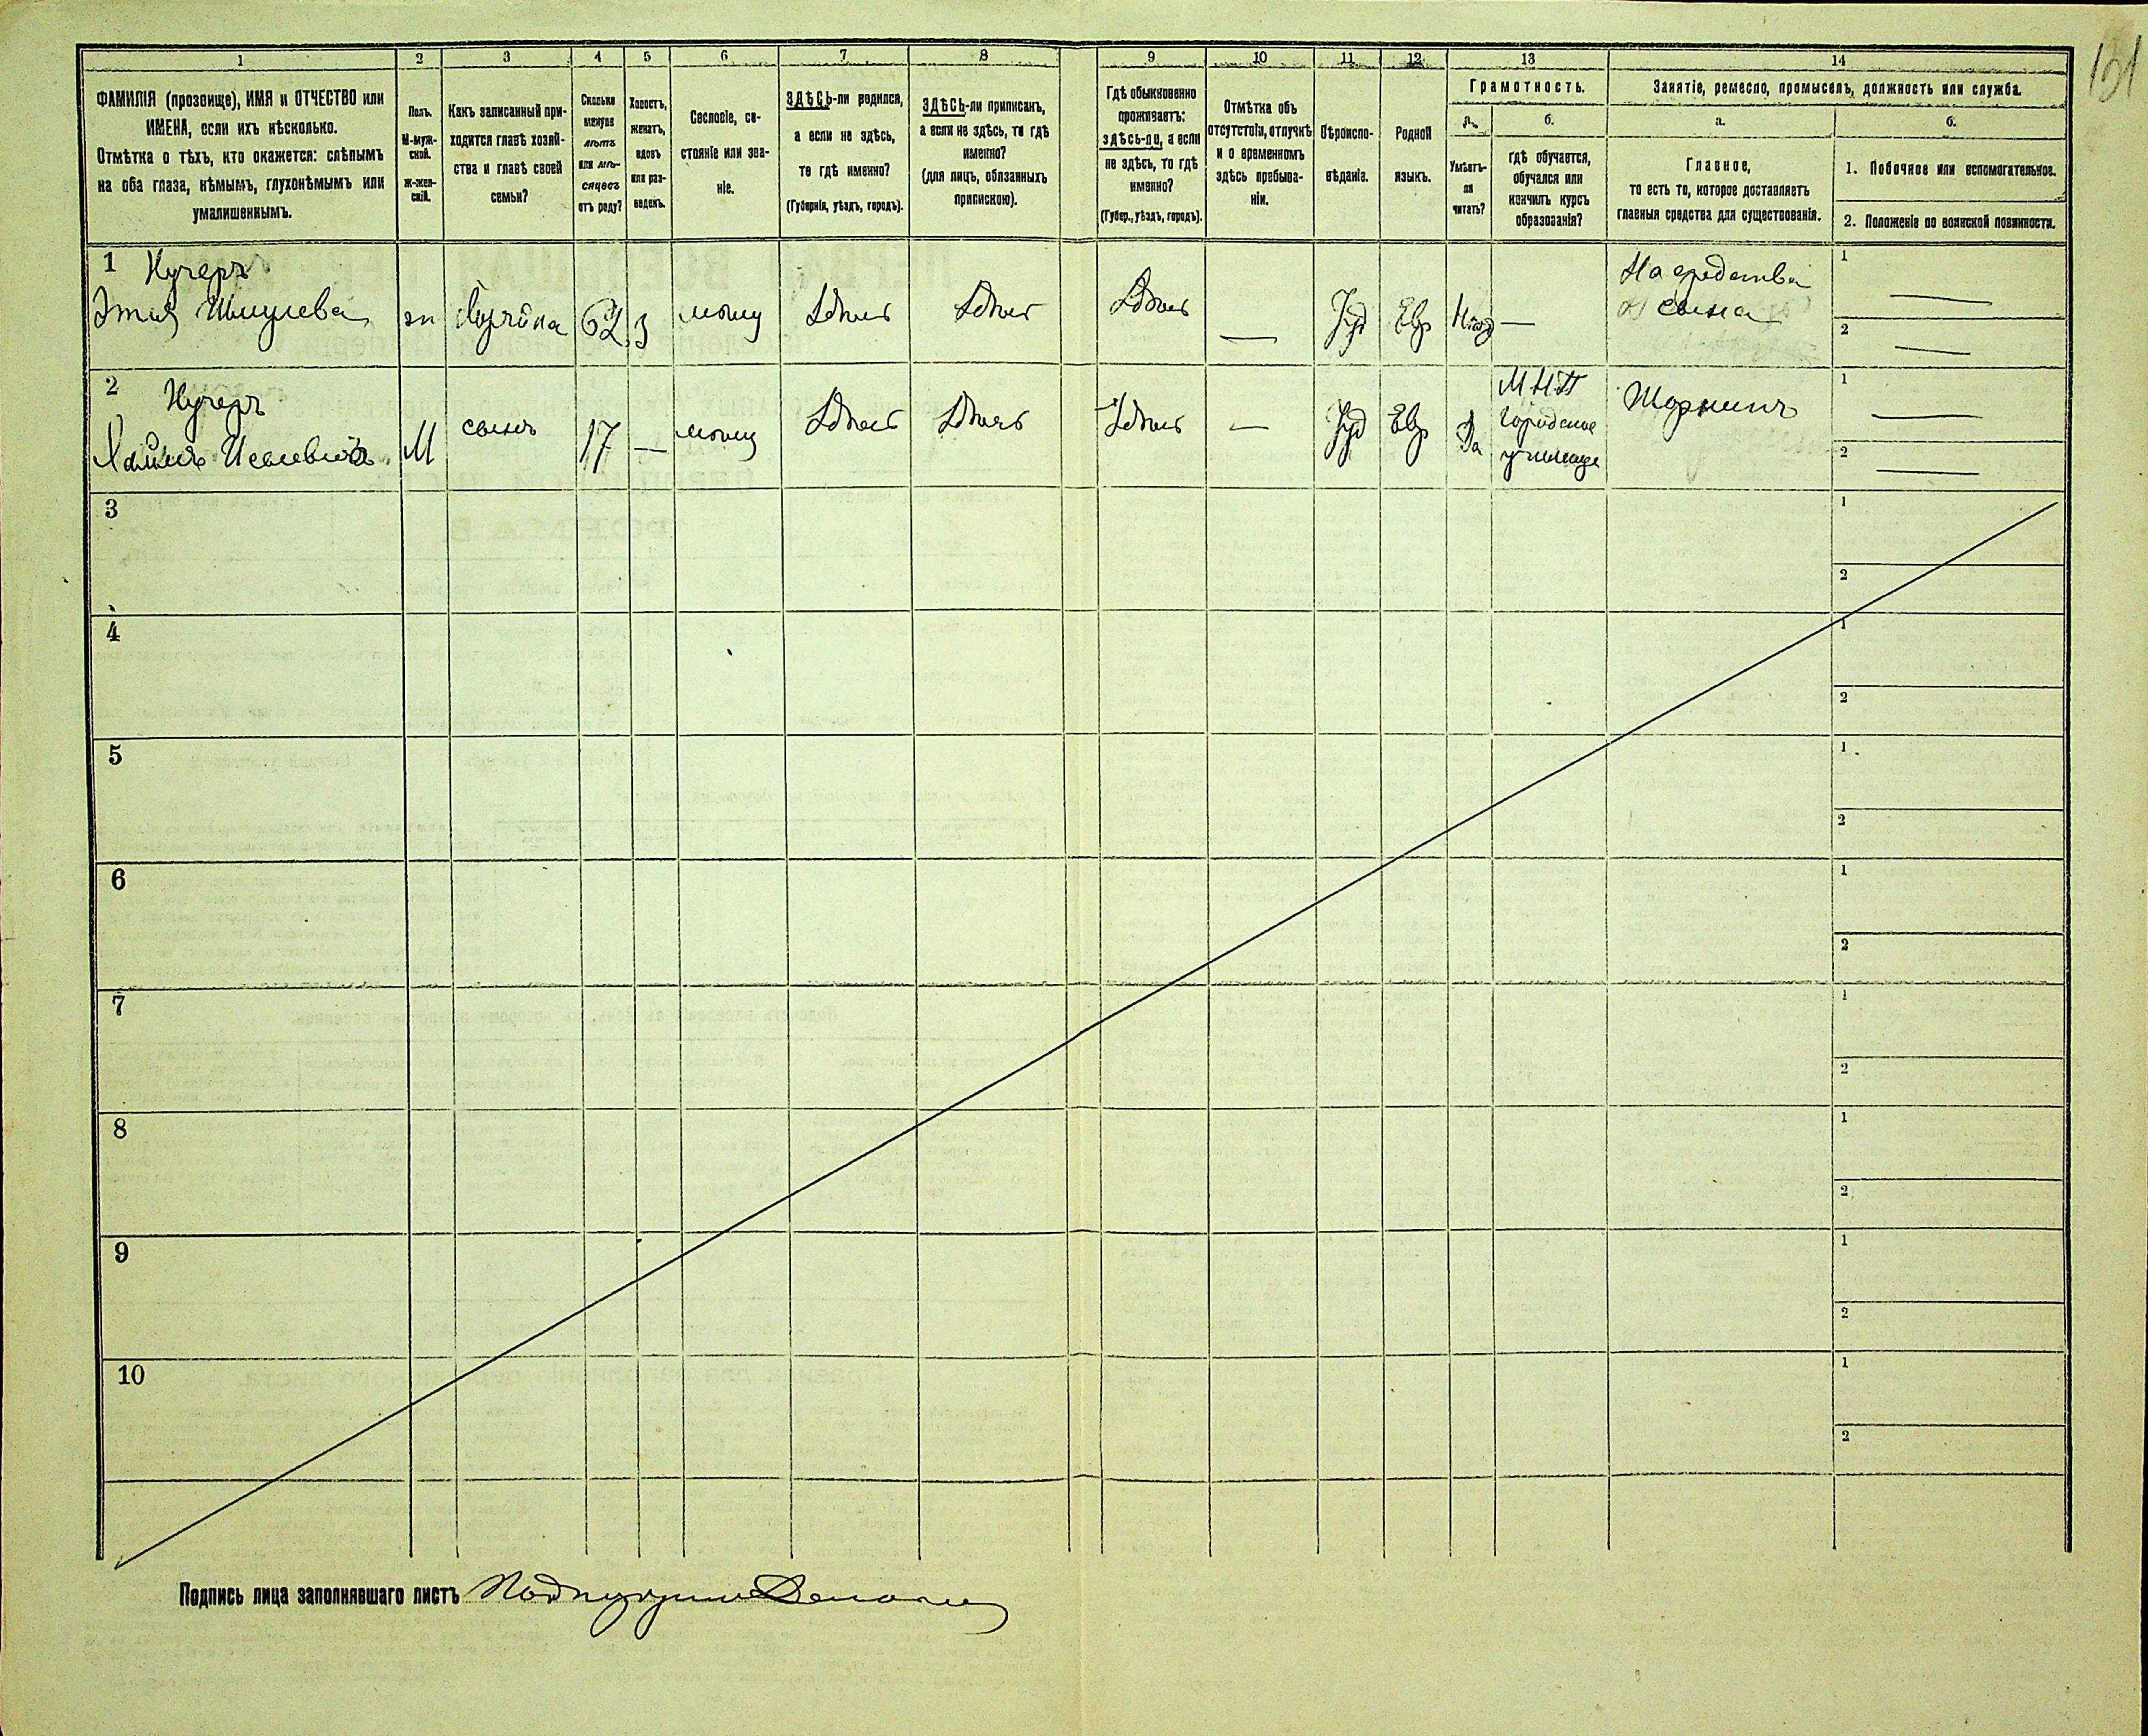 131
1
2
3
4
5
6
7
8
9
10
11
12
13
14
ФАМИЛІЯ (прозвище), ИМЯ и ОТЧЕСТВО или
ИМЕНА, если ихъ нѣсколько.
Отмѣтка о тѣхъ, кто окажется: слѣпымъ
на оба глаза, нѣмымъ, глухонѣмымъ или
умалишеннымъ.
Полъ.
М-муж-
ской.
Ж-жен-
скій.
Какъ записанный при-
ходится главѣ хозяй-
ства и главѣ своей
семьи?
Сколько
минуло
лѣтъ
или мѣ-
сяцевъ
отъ роду?
Холостъ,
женатъ,
вдовъ
или раз-
веденъ.
Сословіе, со-
стояніе или зва-
ніе.
ЗДѢСЬ-ли родился,
а если не здѣсь,
то гдѣ именно?
(Губернія, уѣздъ, городъ).
ЗДѢСЬ-ли приписанъ,
а если не здѣсь, то гдѣ
именно?
(для лицъ, обязанныхъ
припискою).
Гдѣ обыкновенно
проживаетъ:
здѣсь-ли, а если
не здѣсь, то гдѣ
именно?
(Губер., уѣздъ, городъ).
Отмѣтка объ
отсутствіи, отлучкѣ
и о временномъ
здѣсь пребыва-
ніи.
Вѣроиспо-
вѣданіе.
Родной
языкъ.
Грамотность.
а.
Умѣетъ-
ли
читать?
б.
гдѣ обучается,
обучался или
кончилъ курсъ
образованія?
Занятіе, ремесло, промыселъ, должность или служба.
а.
Главное,
то есть то, которое доставляетъ
главныя средства для существованія.
б.
1. Побочное или вспомогательное.
2. Положеніе по воинской повинности.
1 Кучеръ
Шмулева ж 62 Здѣсь Здѣсь Здѣсь — Іуд Евр —
На средства
сына
1 —
2 —
2 Кучеръ
М сынъ 17 — Здѣсь Здѣсь Здѣсь — Іуд Евр Да
М.Н.П
Городское
училище
Шорникъ
1 —
2 —
3
1
2
4
1
2
5
1
2
6
1
2
7
1
2
8
1
2
9
1
2
10
1
2
Подпись лица заполнявшаго листъ